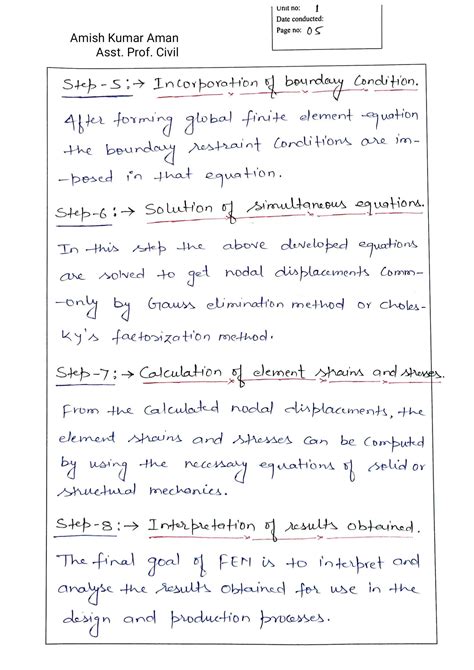 Unit no: 1
Date conducted:
Page no: 05
Amish Kumar Aman
Asst. Prof. Civil
Step-5:→ Incorporation of boundary Condition.
After forming global finite element equation
the boundary restraint Conditions are im-
-posed in that equation.
Step-6:→ Solution of simultaneous equations.
In this step the above developed equations
are solved to get nodal displacements Comm-
-only by Gauss elimination method or Choles-
ky's factosization method.
Step-7:→ Calculation of element strains and stresses.
From the Calculated nodal displacements, the
element strains and stresses can be Computed
by using the necessary equations of solid or
structural mechanics.
Step-8:→ Interpretation of results obtained.
The final goal of FEM is to interpret and
analyse the results obtained for use in the
design and production processes.